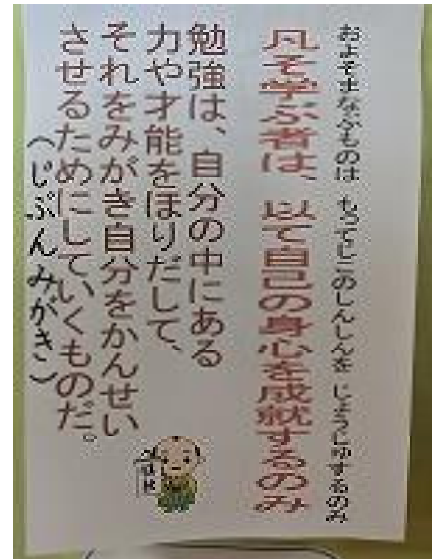 およそまなぶものは もってじこのしんしんを じょうじゅするのみ
凡そ学ぶ者は、以て自己の身心を成就するのみ
勉強は、自分の中にある
力や才能をほりだして、
それをみがき自分をかんせい
させるためにしていくものだ。
(じぶんみがき)